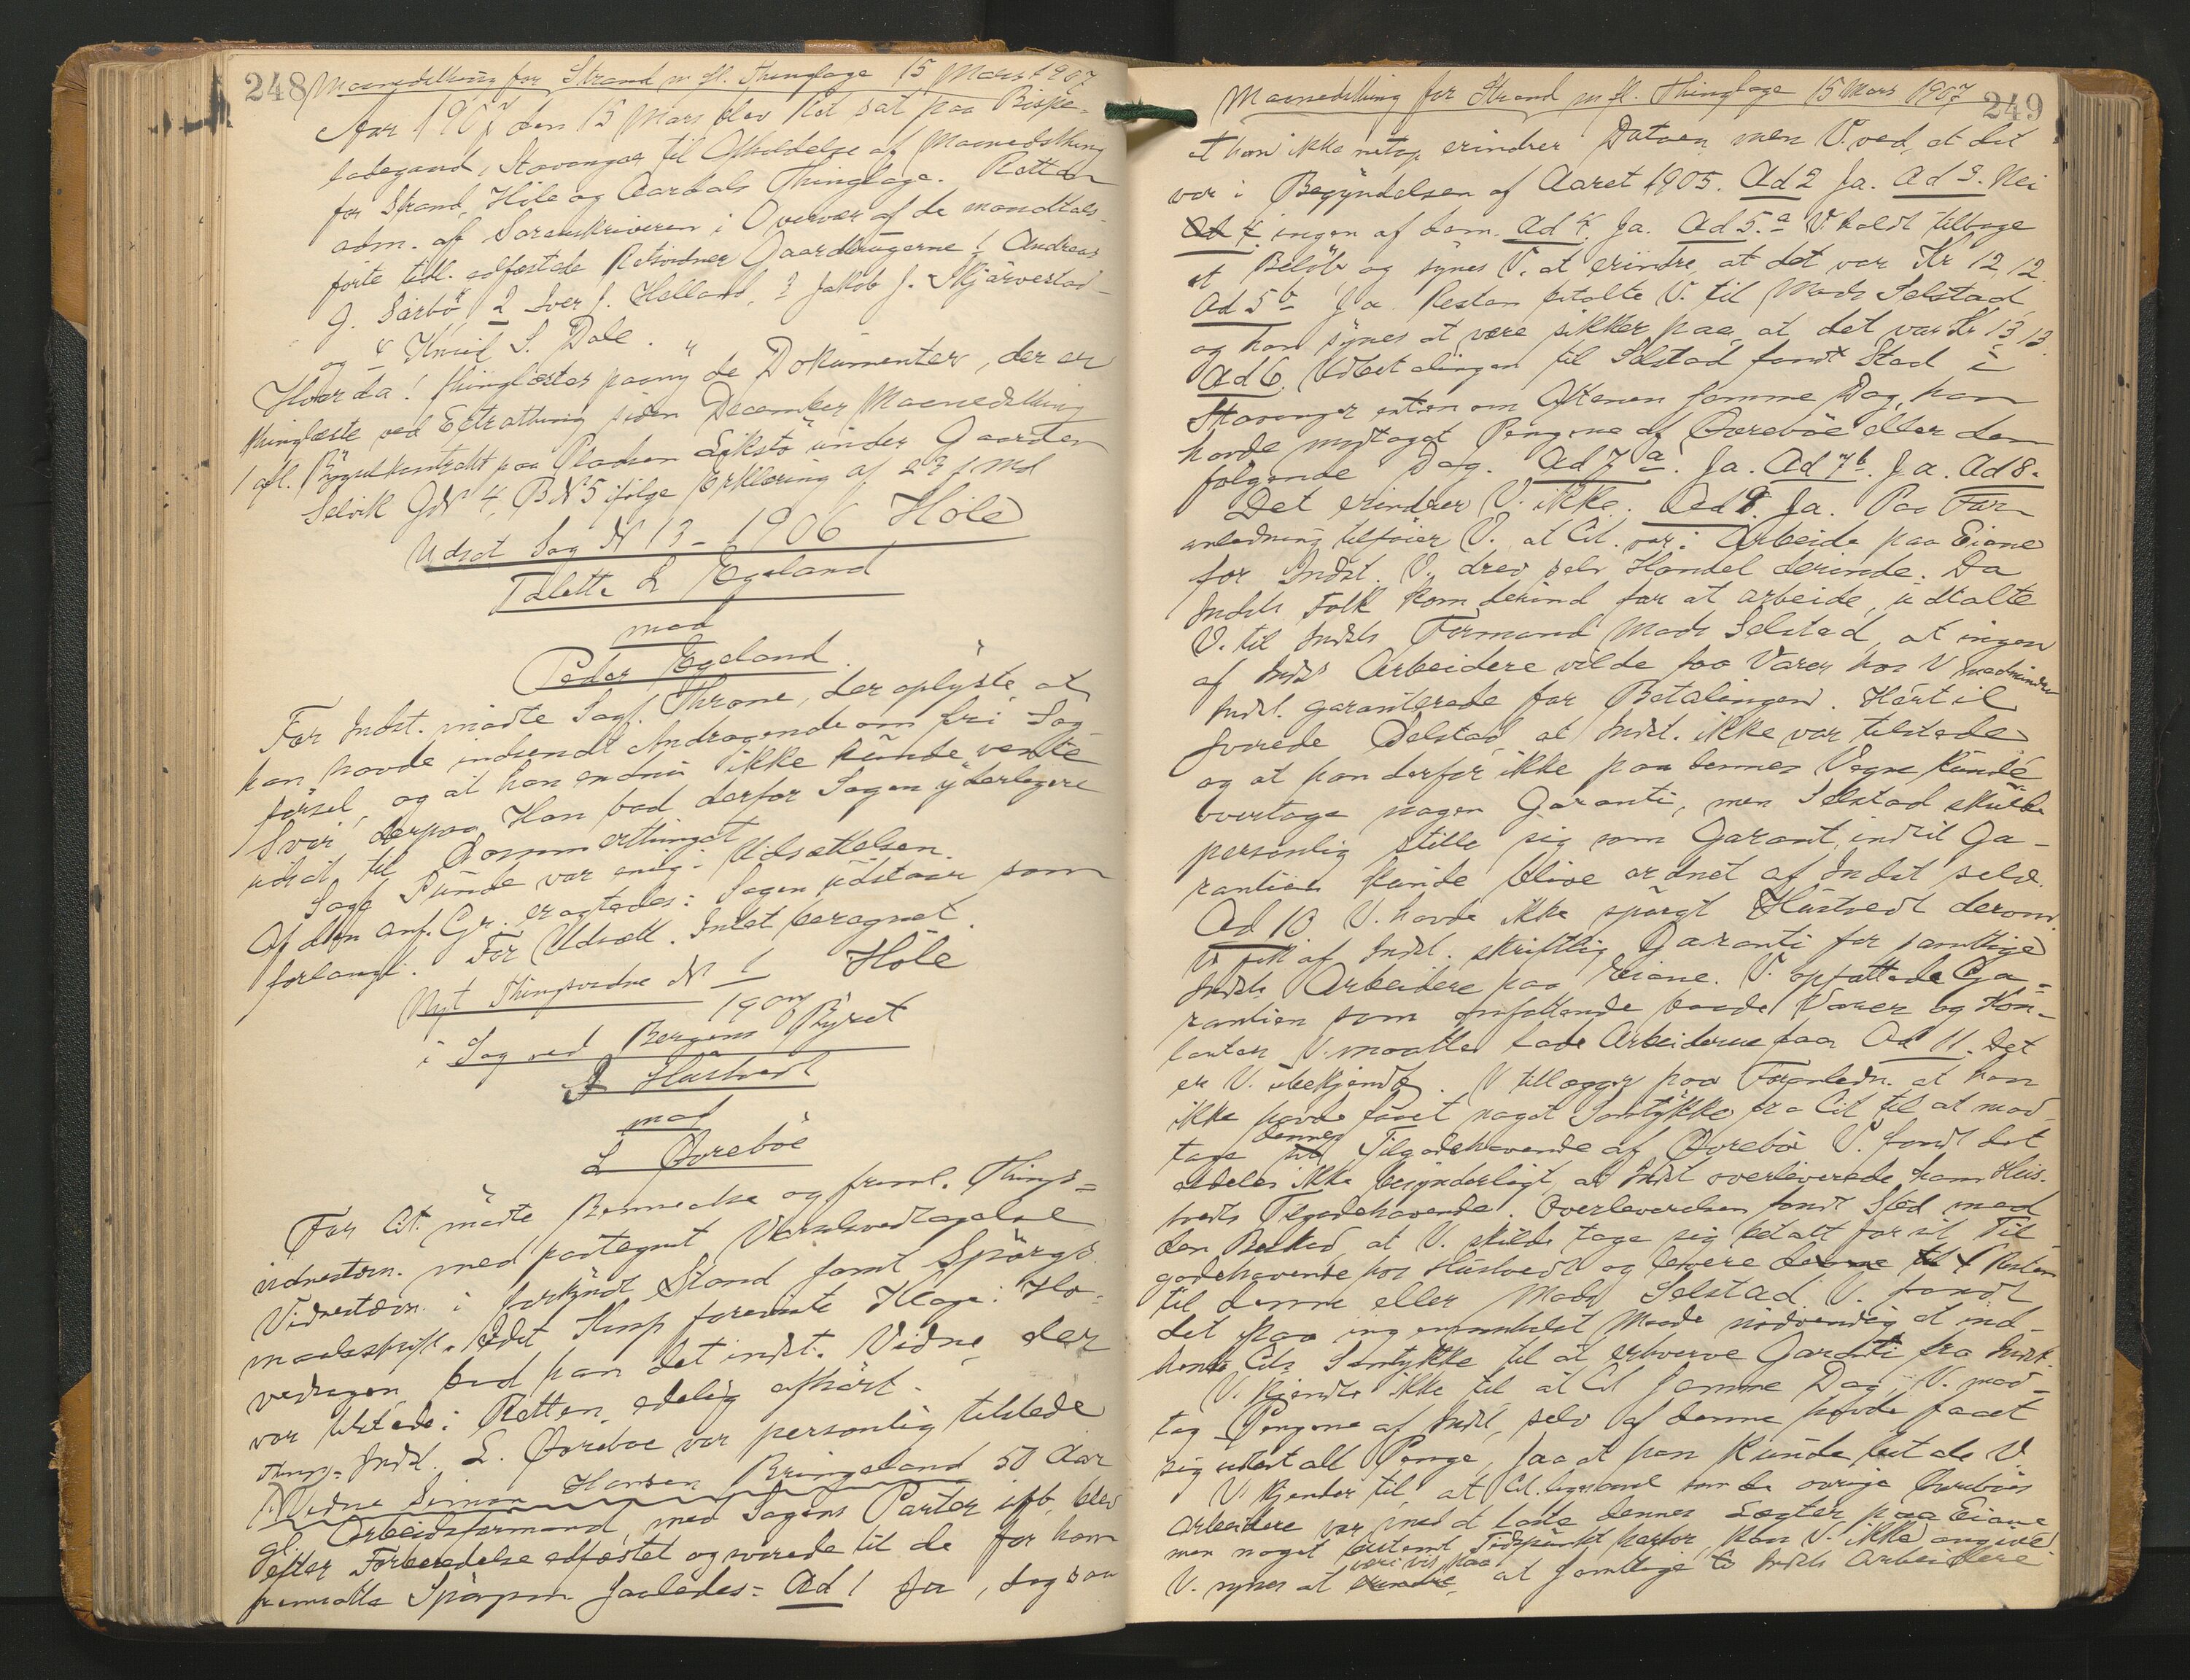 248 Maanedsthing for Strand m fl. Thinglage 15 Mars 1907
Aar 1907 den 15 Mars blev Ret sat paa Bispe-
ladegaard, Stavanger til Afholdelse af Maanedsthing
for Strand, Höle og Aardals Thinglage. Retten
adm. af Sorenskriveren i Overvær af de mandtals-
förte tidl. edfæstede Retsvidner Gaardbrugerne 1 Andreas
G. Barbö, 2 Iver J. Helland, 3 Jakob J. Skjärvestad
og 4 Knud S. Dale.
Hvorda! thinglæstes paany de Dokumenter, der er
thinglæste ved Extrathing siden December Maanedsthing
1 afl. Bygselkontrakt paa Pladsen Löksto under Gaarden
Selvik GN 4, BN 5 ifölge Erklæring af 23 f. Md
Udsat Sag N 13 - 1906 Höle
Tolette L Egeland
mod
Peder Egeland.
For Indst. mödte Sagf. Throne, der oplyste, at
han havde indsendt Andragende om fri Sag
försel, og at han endnu ikke kunde vente
Svar derpaa. Han bad derfor Sagen yderligere
udsat til Sommerthinget
Sagf Punde var enig i Udsættelsen.
Af den anf. Gr. eragtedes: Sagen udstaar som
forlangt. For Udsætt. Intet beregnet.
Nyt Thingsvidne N 1 Höle
1907
i Sag ved Bergens Byret
Hustvedt
mod
L Övreböe
For Cit. mödte Bennecke og freml. Things-
vidnestevn. med paategnet Varselsvedtagelse
Vidnestævn. i forkyndt Stand samt Spörgs-
maalsskrift. Idet Kmp foreviste Klage i Ho-
vedsagen, bad han det indst. Vidne, der
var tilstede i Retten, edelig afhört.
Indst. L. Övreboe var personlig tilstede
1) Vidne Simon Hansen Bringeland 50 Aar
gl. Arbeidsformand, med Sagens Parter ifb, blev
efter Forberedelse edfæstet og svarede til de for ham
fremsatte Spörgsm. saaledes: Ad 1 Ja, dog saa
Maanedsthing for Strand m fl. Thinglage 15 Mars 1907 249
at han ikke netop erindrer Datoen, men V. ved, at det
var i Begyndelsen af Aaret 1905. Ad 2 Ja. Ad 3. Nei
ingen af dem. Ad 4. Ja. Ad 5.a V. holdt tilbage
et Belöb og synes V. at erindre, at det var Kr 12,12.
Ad 5b Ja. Resten betalte V. til Mads Selstad,
og han synes at være sikker paa, at det var Kr 13,13.
Ad 6. Udbetalingen til Selstad fandt Sted i
Stavanger enten om Aftenen samme Dag, han
havde modtaget Pengene af Övreböe eller den
fölgende Dag. Ad 7a. Ja. Ad 7b. Ja. Ad 8.
Det erindrer V. ikke. Ad 9. Ja. Paa For-
anledning tilföier V. at Cit. var i Arbeide paa Eiane
for Indst. V. drev selv Handel derinde. Da
Indsts Folk kom derind for at arbeide, udtalte
V. til Indsts Formand Mads Selstad, at ingen
af Indsts Arbeidere vilde faa Varer hos V medmindre
Indst. garanterede for Betalingen. Hertil
svarede Selstad, at Indst. ikke var tilstede
og at han derfor ikke paa dennes Vegne kunde
overtage nogen Garanti, men Selstad skulde
personlig stille sig som Garant, indtil Ga-
rantien kunde blive ordnet af Indst selv.
Ad 10 V. havde ikke spörgt Hustvedt derom.
V. fik af Indst. skriftlig Garanti for samtlige
Indsts Arbeidere paa Eiane. V. opfattede Ga-
rantien som omfattende baade Varer og Kon-
tanter V. maatte lade Arbeiderne faa. Ad 11. Det
er V. ubekjendt. V tillægger paa Foranledn. at han
ikke havde faaet noget Samtykke fra Cit. til at mod-
tage dennes Tilgodehavende af Övrebö. V. fandt det
aldeles ikke besynderligt, at Indst overleverede ham Hus-
tvedts Tilgodehavende. Overleverelsen fandt Sted med
den Besked, at V. skulde tage sig betalt for sit Til-
godehavende hos Hustvedt og levere Resten
til denne eller Mads Selstad V. fandt
det paa ingensomhelst Maade nödvendig at ind-
hente Cits Samtykke til at erhverve Garanti fra Indst.
V. kjendte ikke til at Cit samme Dag, V. mod-
tog Pengene af Indst, selv af denne havde faaet
sig udbetalt Penge, saa at han kunde betale V.
V. kjender til, at Cit. ligesaavel som de övrige Övreböes
Arbeidere var med at laste dennes Lægter paa Eiane
men noget bestemt Tidspunkt herfor, kan V. ikke angive.
V. synes at være vis paa at samtlige Indsts Arbeidere